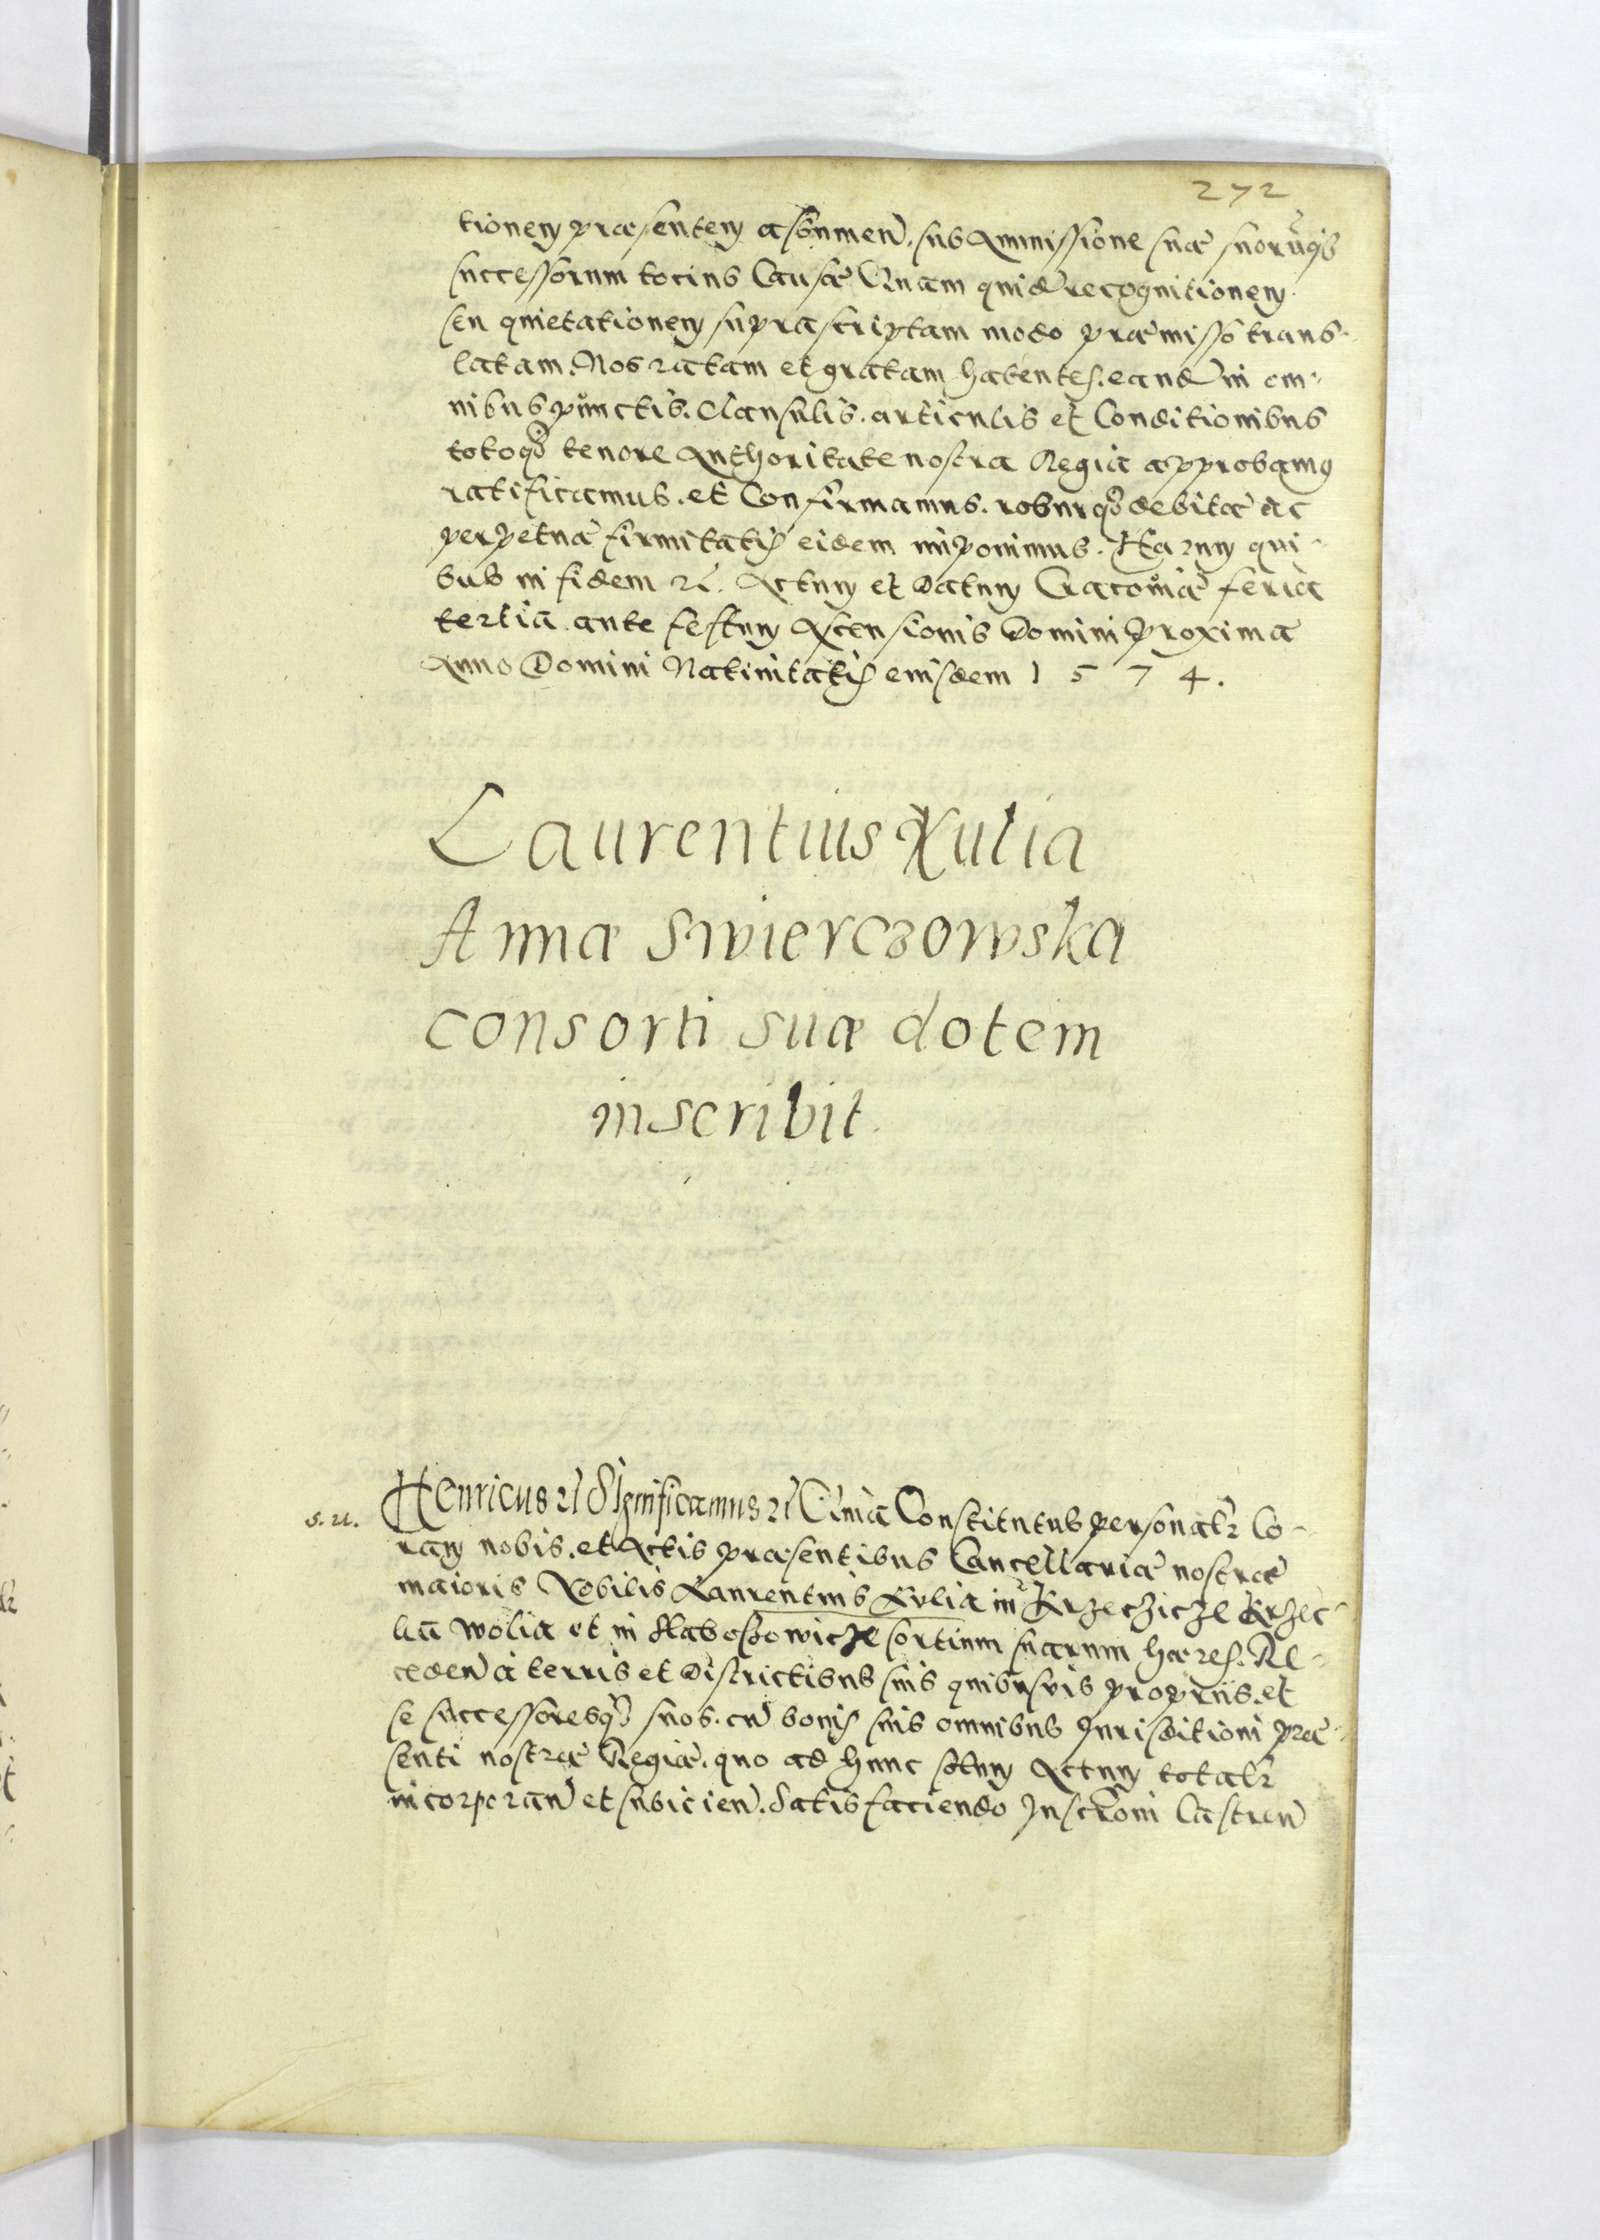 272
tionem præsentem assumen̄. sub Amissione suæ suorūq3
successorum tocius Causæ Quam quidē recognitionem
seu quietationem supra scriptam modo præmisso trans-
latam. Nos ratam et gratam habentes. eandē in om-
nibus punctis. Clausulis. articulis et Conditionibus
totoq3 tenore Authoritate nostra Regia approbamus
ratificamus. et Confirmamus. roburq3 debitæ ac
perpetuæ firmitatis eidem imponimus. Harum qui-
bus in fidem etc. Actum et Datum Cracoviæ feria
tertia ante festum Ascensionis Domini proxima
Anno Domini Nativitatis eiusdem 1574.
Laurentius Xulia
Annæ Swierczowska
consorti suæ dotem
inscribit.
s. u.
Henricus etc Significamus etc Quia Constitutus personalr Co-
ram nobis. et Actis præsentibus Cancellariæ nostræ
maioris Nobilis Laurentius Xulia in Krzeczicze Krzec-
ka Wolia et in sortium suarum hæres. Re-
ceden̄ a terris et Districtibus suis quibusvis propriis. et
se successoresq3 suos. cū bonis suis omnibus Jurisditioni præ-
senti nostræ Regiæ. quo ad hunc sol̄um Actum totalr
incorporan̄ et subiicien̄. Satisfaciendo Inscr̄oni Castren̄